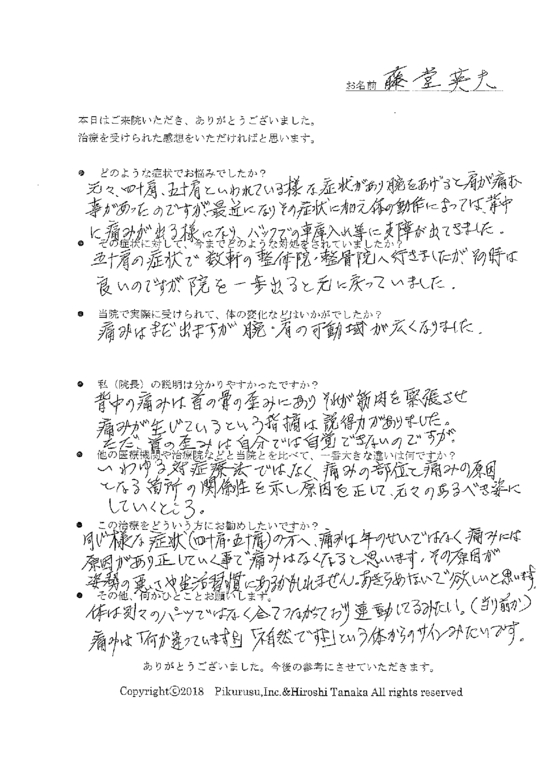 お名前 藤堂英夫
本日はご来院いただき、ありがとうございました。
治療を受けられた感想をいただければと思います。
● どのような症状でお悩みでしたか？
元々、四十肩、五十肩といわれている様な症状があり腕をあげると肩が痛む
事があったのですが、最近になりその症状に加え体の動作によっては、背中
に痛みが出る様になり、バックでの車庫入れ等に支障が出てきました。
● その症状に対して、今までどのような対処をされていましたか？
五十肩の症状で数軒の整体院・整骨院へ行きましたが、その時は
良いのですが、院を一歩出ると元に戻っていました。
● 当院で実際に受けられて、体の変化などはいかがでしたか？
痛みはまだ出ますが腕・肩の可動域が広くなりました。
● 私（院長）の説明は分かりやすかったですか？
背中の痛みは首の骨の歪みにあり それが筋肉を緊張させ
痛みが生じているという指摘は説得力がありました。
ただ、首の歪みは自分では自覚できないのですが。
● 他の医療機関や治療院などと当院とを比べて、一番大きな違いは何ですか？
いわゆる対症療法ではなく 痛みの部位と痛みの原因
となる箇所の関係性を示し原因を正して、元々のあるべき姿に
していくところ。
● この治療をどういう方にお勧めしたいですか？
同じ様な症状（四十肩・五十肩）の方へ、痛みは年のせいではなく痛みには
原因があり正していく事で痛みはなくなると思います。その原因が
姿勢の悪さや生活習慣にあるかもしれません。あきらめないで欲しいと思います。
● その他、何かひとことお願いします。
体は別々のパーツではなく全てつながっており連動してるみたい。（当り前か）
痛みは「何か違っています」「不自然です」という体からのサインみたいです。
ありがとうございました。今後の参考にさせていただきます。
Copyright©2018 Pikurusu,Inc.&Hiroshi Tanaka All rights reserved